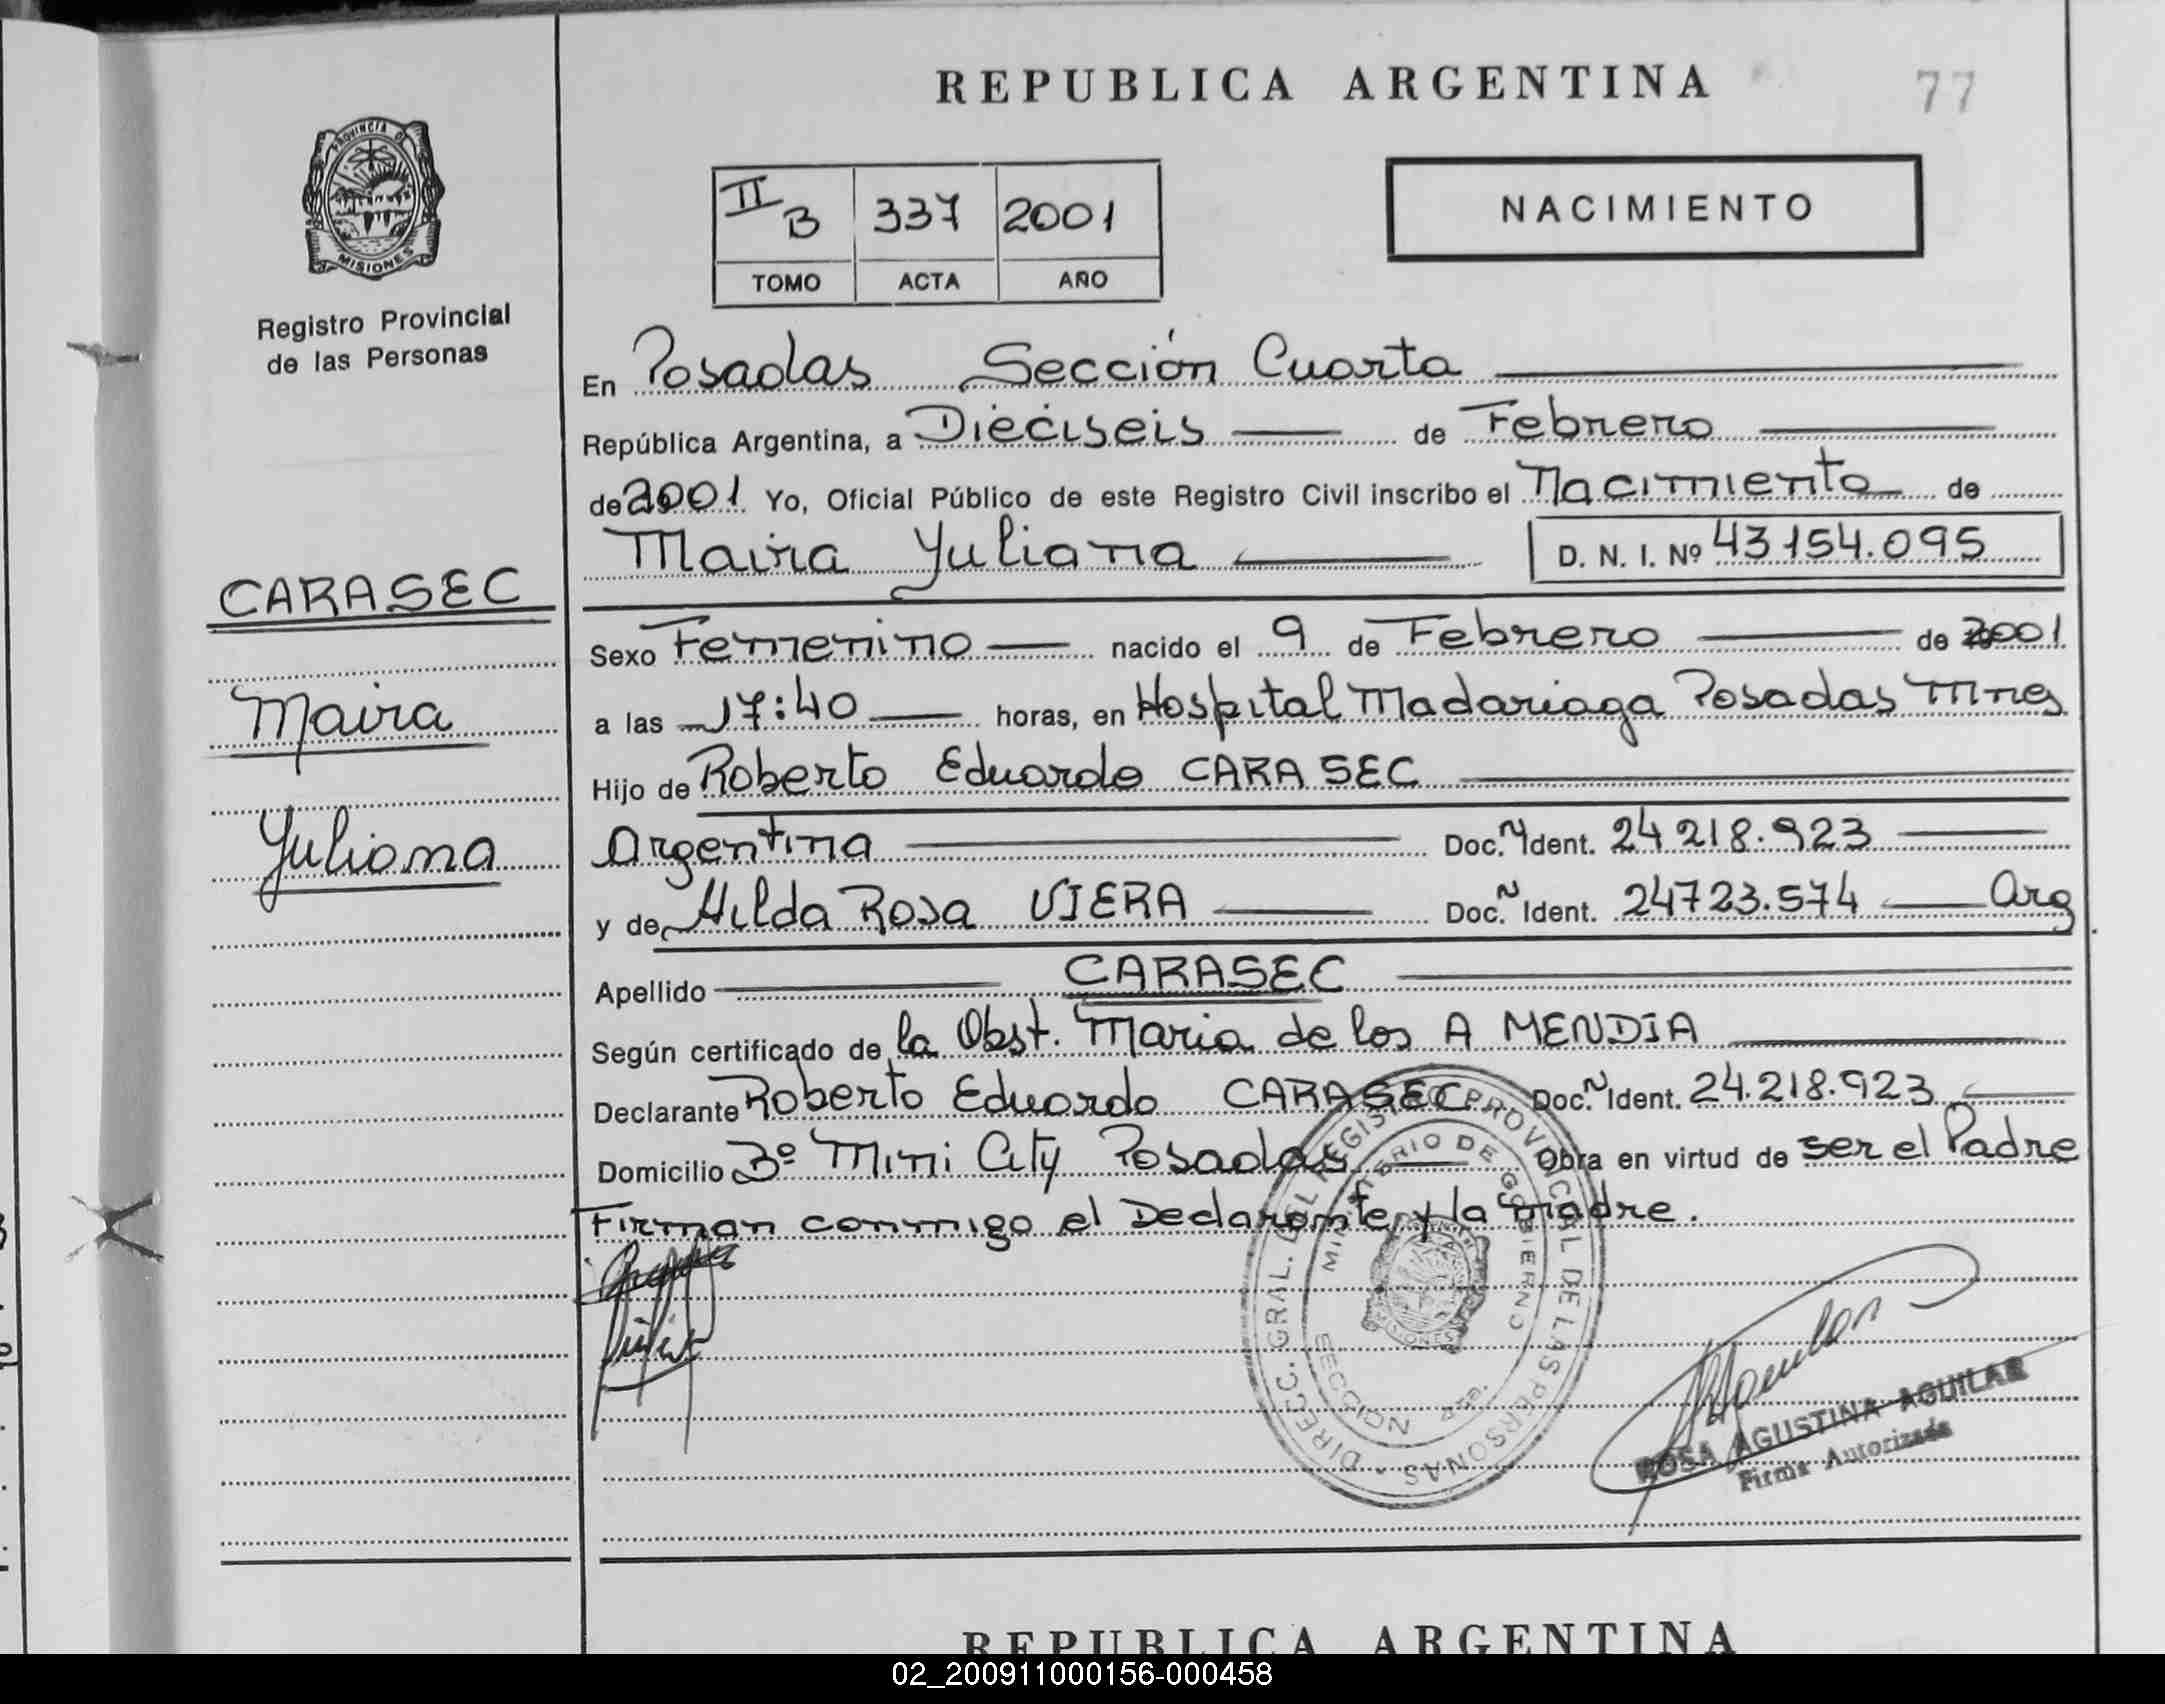 REPUBLICA ARGENTINA
77
PROVINCIA DE
MISIONES
Registro Provincial
de las Personas
II B 337 2001
TOMO ACTA AÑO
NACIMIENTO
En Posadas Sección Cuarta
República Argentina, a Dieciseis de Febrero
de 2001 Yo, Oficial Público de este Registro Civil inscribo el Nacimiento de
Maira Yuliana D. N. I. Nº 43154.095
CARASEC
Maira
Yuliana
Sexo Femenino nacido el 9 de Febrero de 2001
a las 17:40 horas, en Hospital Madariaga Posadas Mnes
Hijo de Roberto Eduardo CARASEC
Argentina Doc. N Ident. 24 218.923
y de Hilda Rosa VIERA Doc. N Ident. 24723.574 Arg
Apellido CARASEC
Según certificado de la Obst. Maria de los A MENDIA
Declarante Roberto Eduardo CARASEC Doc. N Ident. 24.218.923
Domicilio Bº Mini City Posadas Obra en virtud de ser el Padre
Firman conmigo el Declarante y la madre.
DIRECC. GRAL. DEL REGISTRO PROVINCIAL DE LAS PERSONAS
MINISTERIO DE GOBIERNO
SECCION 4ta.
MISIONES
ROSA AGUSTINA AGUILAR
Firma Autorizada
REPUBLICA ARGENTINA
02_200911000156-000458